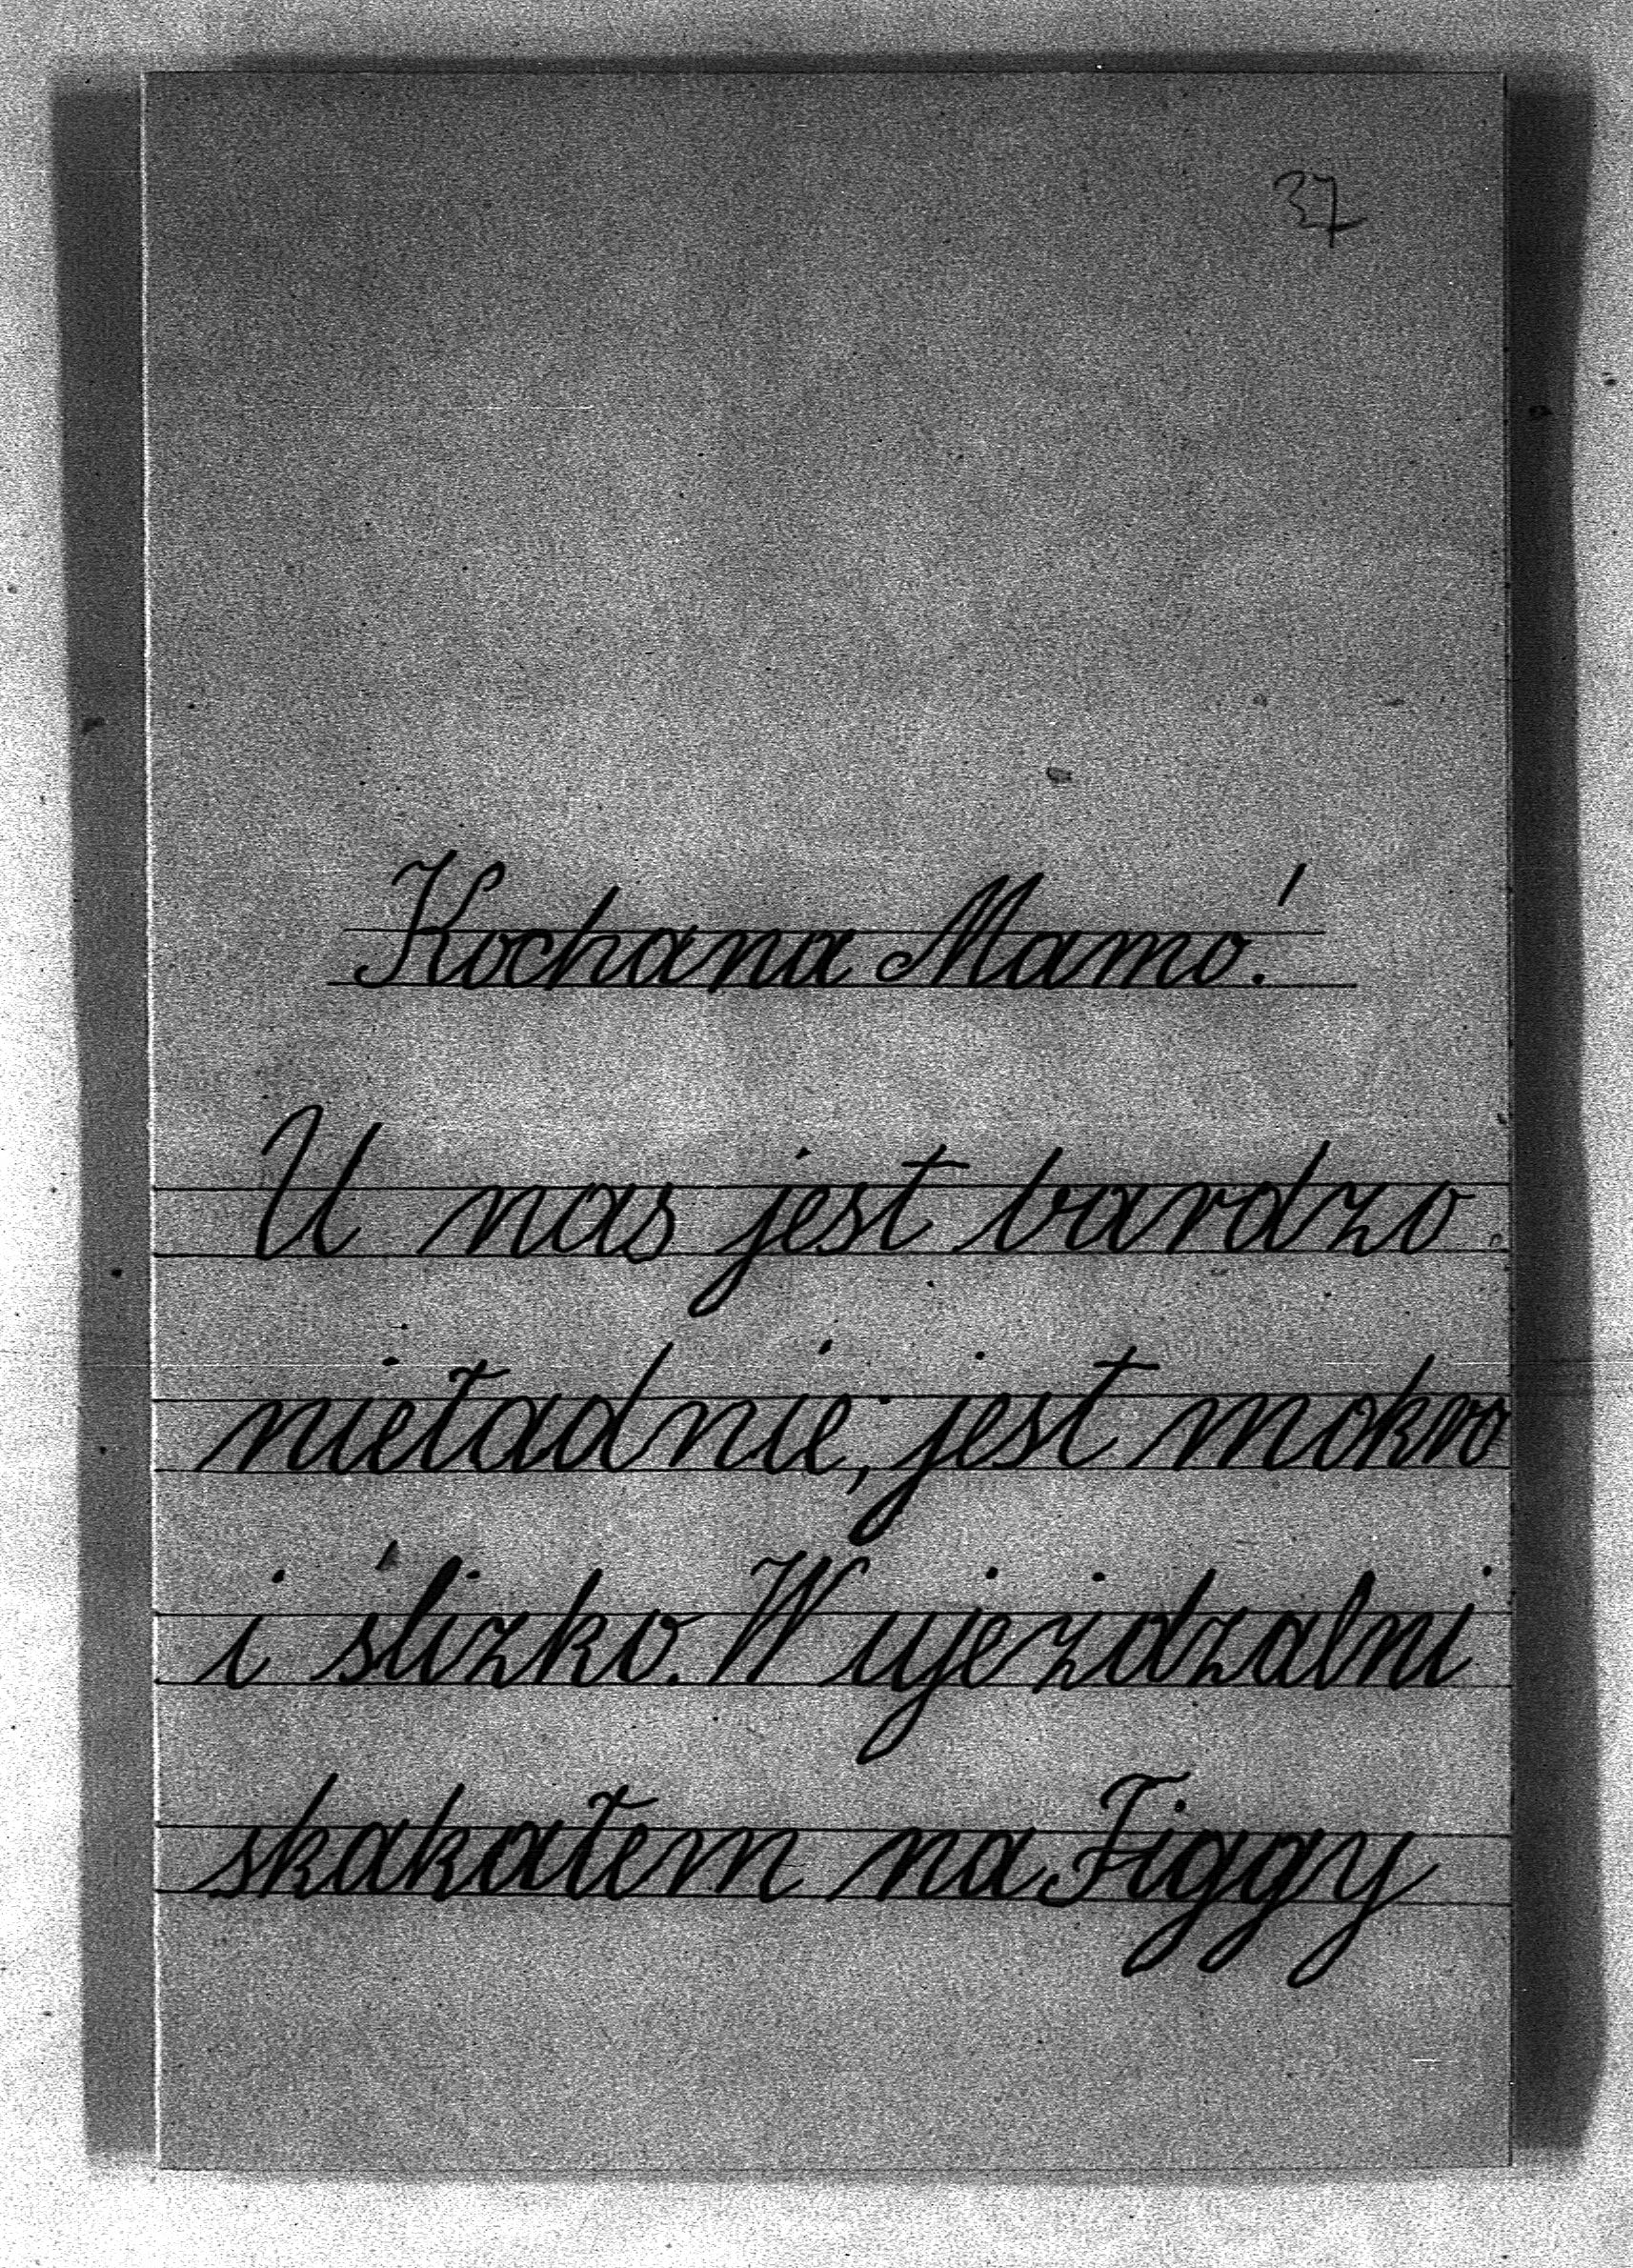 37
Kochana Mamo!
U nas jest bardzo
nieładnie, jest mokro
i ślizko. W ujeżdzalni
skakałem na Figgy